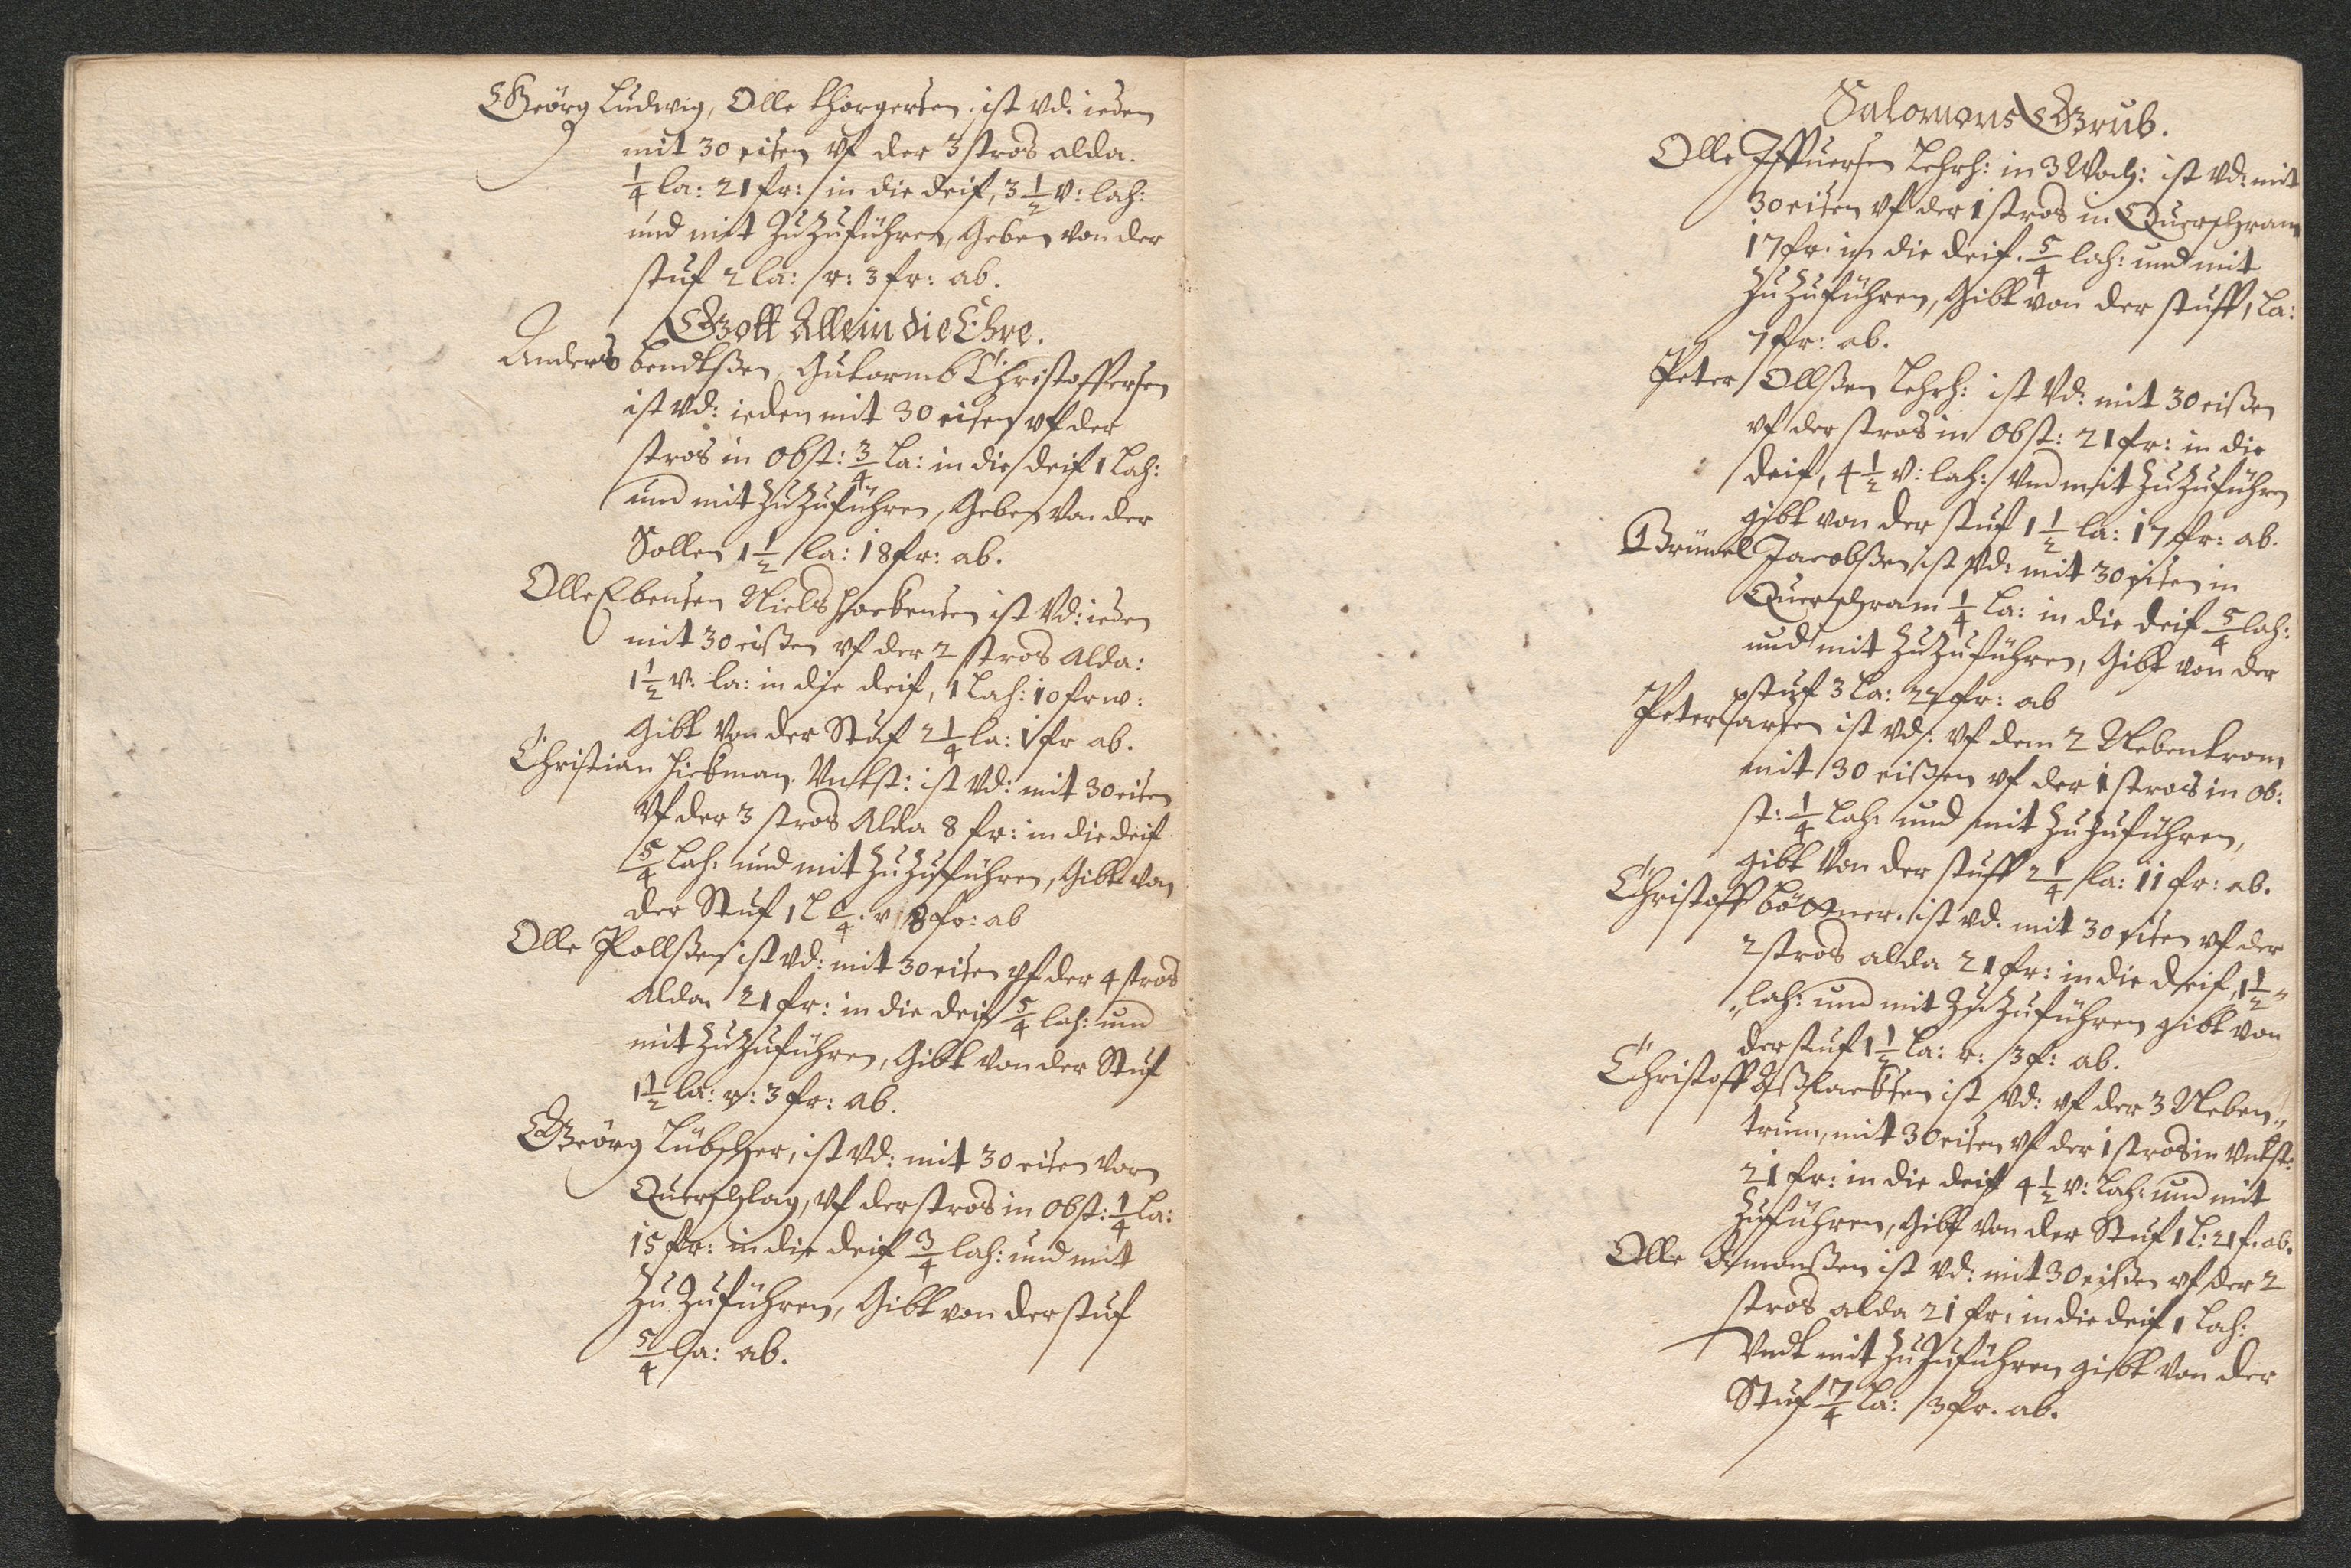 Georg Ludwig, Olle Thorgersen ist vd: ieden
mit 30 eisen vf der 3 stros alda.
1/4 la: 21 fr: in die deif, 3 1/2 v: lach:
und mit Zu Zuführen, Geben von der
stuf 2 la: r: 3 fr: ab.
Gott Allein die Ehre.
Anders bendtßen, Gutormb Christoffersen
ist vd: ieden mit 30 eisen vf der
stros in Obst: 3/4 La: in die deif 1 Lach:
und mit Zu Zuführen, Geben Von der
Sollen 1 1/2 la: 18 fr: ab.
Olle Ebensen Niels ist Vd: ieden
mit 30 eißen vf der 2 stros Alda:
1 1/2 v. la: in die deif, 1 Lach: 10 fr w:
Gibt Von der Stuf 2 1/4 la: 1 fr ab.
Christian Hickman. Untst: ist Vd: mit 30 eisen
Vf der 3 stros Alda 8 fr: in die deif
5/4 Lach: und mit Zu Zuführen, Gibt von
der Stuf 1 L 8 fr: ab
Olle Pollßen ist vd: mit 30 eisen vf der 4 stros
Alda 21 fr: in die deif 5/4 lach: und
mit Zu Zuführen, Gibt Von der Stuf
1 1/2 la: r: 3 fr: ab.
Georg Lübscher, ist Vd: mit 30 eisen vorn
Querschlag, Vf der stros in Obst: 1/4 la:
15 fr: in die deif 3/4 lach: und mit
Zu Zuführen, Gibt von der stuf
5/4 la: ab.
Salomons Grub.
Olle Iffuersen Lehrh: in 3 Woch: ist Vd: mit
30 eisen vf der 1 stros in Querschram
17 fr: in die deif. 5/4 lach: und mit
Zu Zuführen, Gibt von der stuff 1 La:
7 fr: ab.
Peter Ollßen Lehrh: ist Vd: mit 30 eißen
vf der stros in Obst: 21 fr: in die
deif, 4 1/2 v: lach: Und mit Zu Zuführen
gibt von der stuf 1 1/2 la: 17 fr: ab.
Brünel Jacobßen ist Vd: mit 30 eisen in
Querschram 1/4 La: in die deif 5/4 lach:
und mit Zu Zuführen, Gibt von der
stuf 3 La: 22 fr: ab
Peter Larsen ist vd: vf dem 2 Nebentrom
mit 30 eißen vf der 1 stros in Ob:
st: 1/4 Lach: und mit Zu Zuführen,
gibt Von der stuff 2 1/4 la: 11 fr: ab.
Christoff böttner. ist vd. mit 30 eisen vf der
2 stros alda 21 fr: in die deif, 1 1/2
lach: und mit Zu Zuführen gibt von
der stuf 1 1/2 La: r: 3 f: ab.
Christoff Aßlacksen ist Vd: vf der 3 Neben„
trum, mit 30 eisen vf der 1 stros in Untst:
21 fr: in die deif 4 1/2 v: Lach: und mit
Zuführen, Gibt Von der Stuf 1 l: 21 f: ab.
Olle Amonßen ist Vd: mit 30 eißen vf der 2
stros alda 21 fr: in die deif 1 Lach:
Undt mit Zu Zuführen gibt Von der
Stuf 7/4 La: 3 fr. ab.